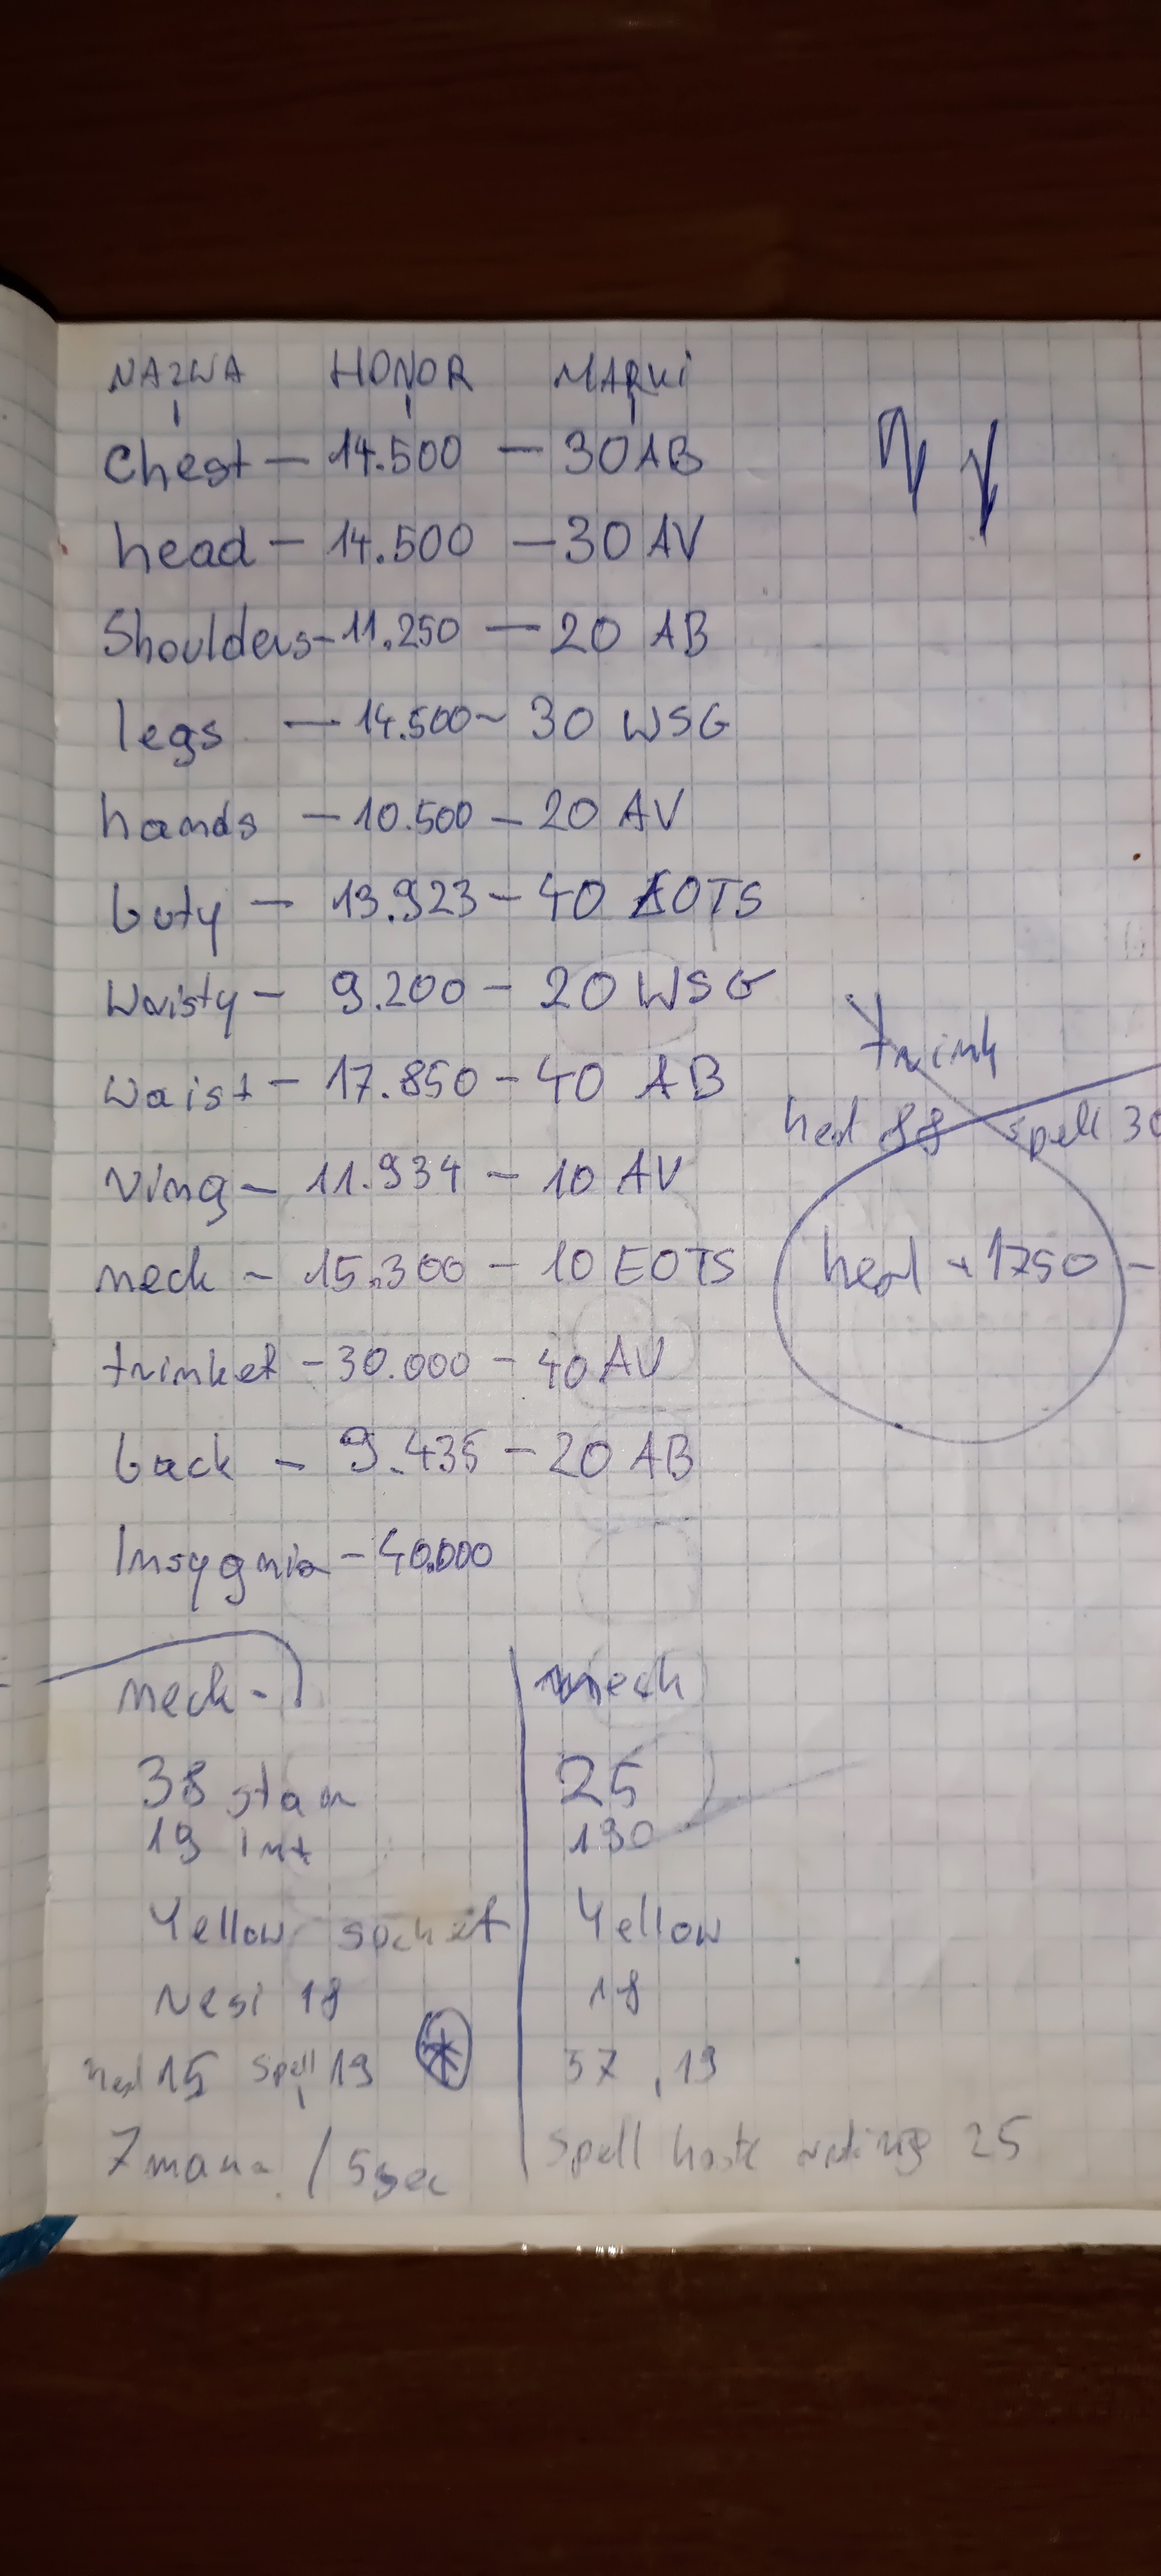 NAZWA HONOR MARKI
Chest - 14.500 - 30 AB
head - 14.500 - 30 AV
Shoulders - 11.250 - 20 AB
legs - 14.500 - 30 WSG
hands - 10.500 - 20 AV
buty - 13.923 - 40 EOTS
Wristy - 9.200 - 20 WSG
Waist - 17.850 - 40 AB
ring - 11.934 - 10 AV
neck - 15.300 - 10 EOTS
trinket - 30.000 - 40 AV
back - 9.435 - 20 AB
Insygnia - 40.000
trink
heal 88 spell 30
heal + 1750 -
neck -
38 stam
19 int
Yellow socket
Resi 18
heal 15 spell 19
7 mana / 5 sec
neck
25
190
Yellow
18
37, 19
Spell hast rating 25